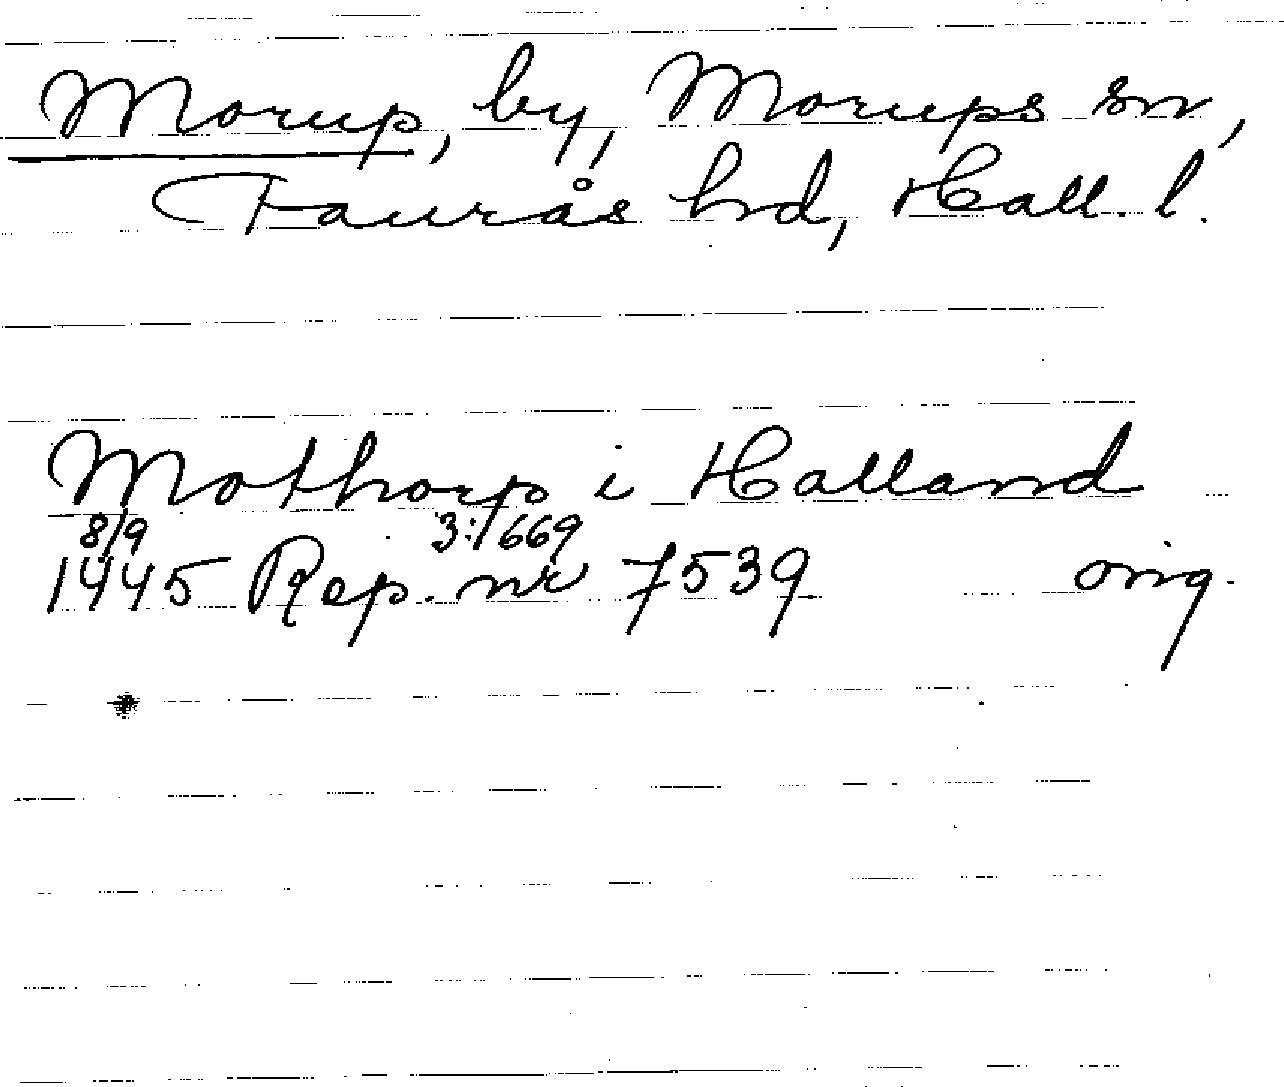 Morup, by, Morups sn,
Faurås hd, Hall. l.
Mothorp i Halland
8/9 3:/669
1445 Rep. nr 7539 orig.